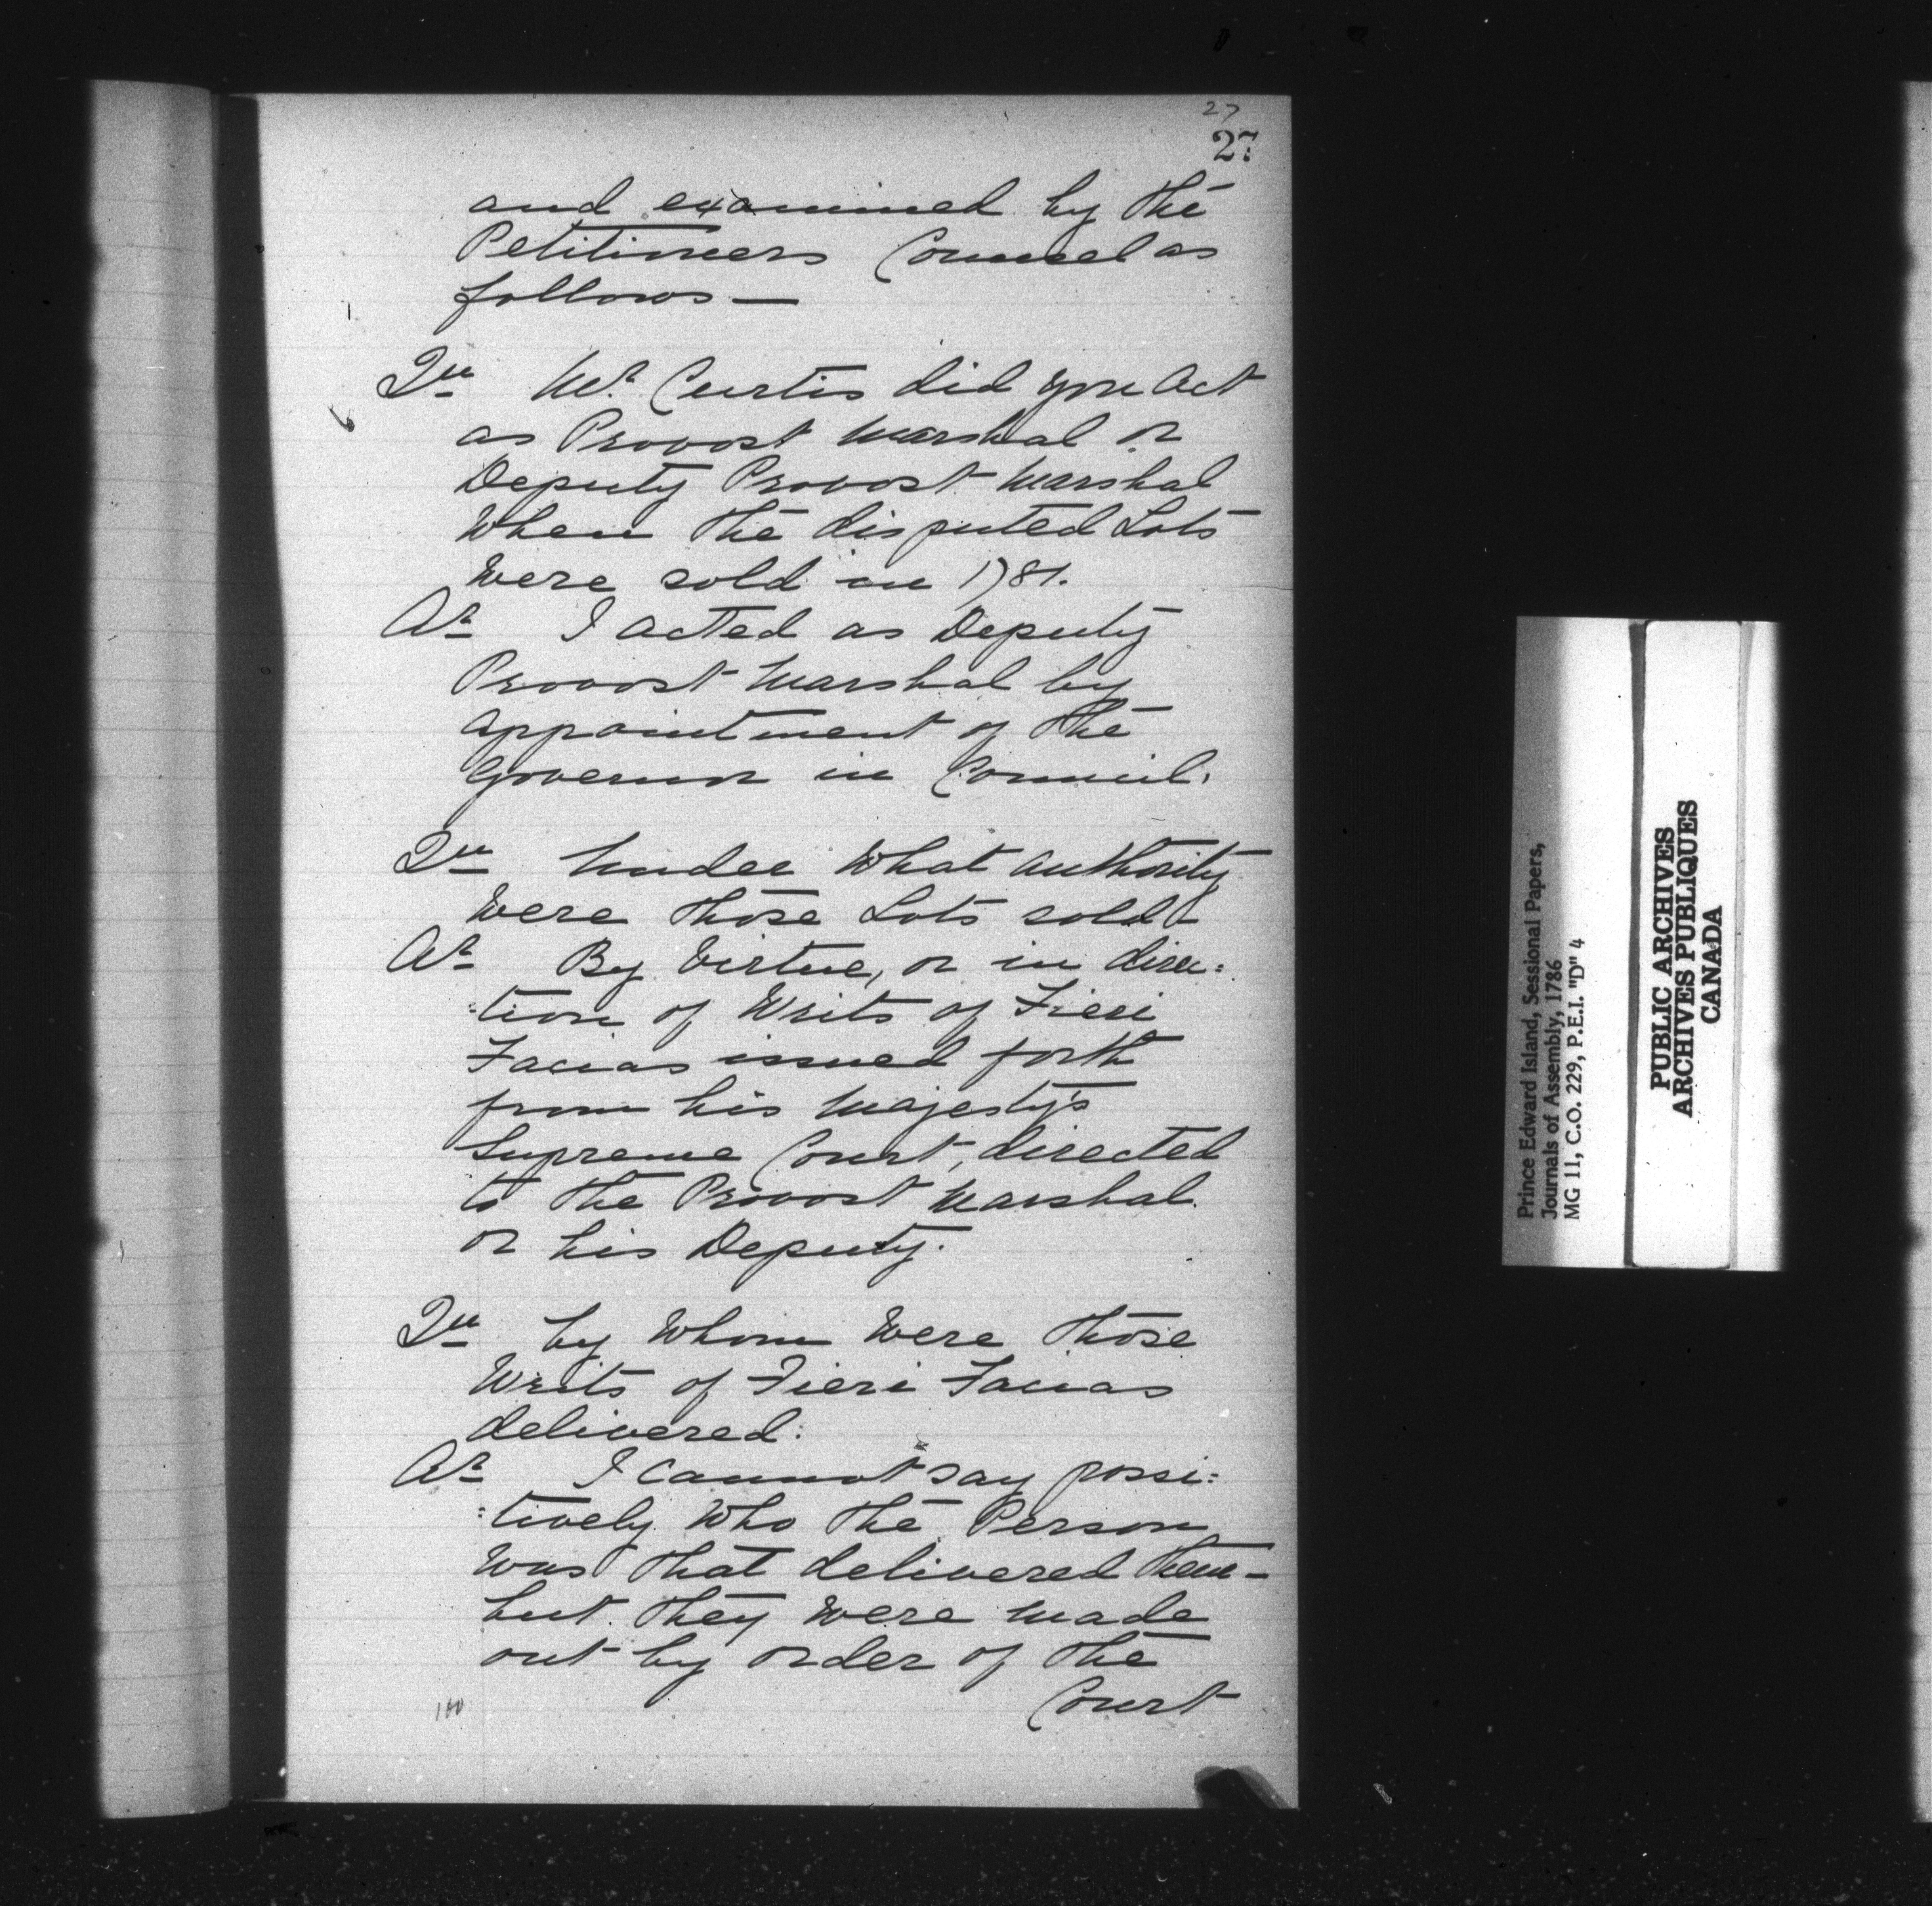 27
27
and examined by the
Petitioners Counsel as
follows —
Qu Mr. Curtis did you Act
as Provost Marshal or
Deputy Provost Marshal
When the disputed Lots
Were sold in 1781.
Ar I acted as Deputy
Provost Marshal by
appointment of the
Governor in Council.
Qu Under What authority
Were those Lots sold
Ar By Virtue, or in direc:
:tion of Writs of Fieri
Facias issued forth
from his Majesty's
Supreme Court, directed
to the Provost Marshal
or his Deputy.
Qu by Whom Were those
Writs of Fieri Facias
delivered.
Ar I cannot say possi:
:tively Who the Person
Was that delivered them —
but they Were made
out by order of the
Court
100
Prince Edward Island, Sessional Papers,
Journals of Assembly, 1786
MG 11, C.O. 229, P.E.I. "D" 4
PUBLIC ARCHIVES
ARCHIVES PUBLIQUES
CANADA